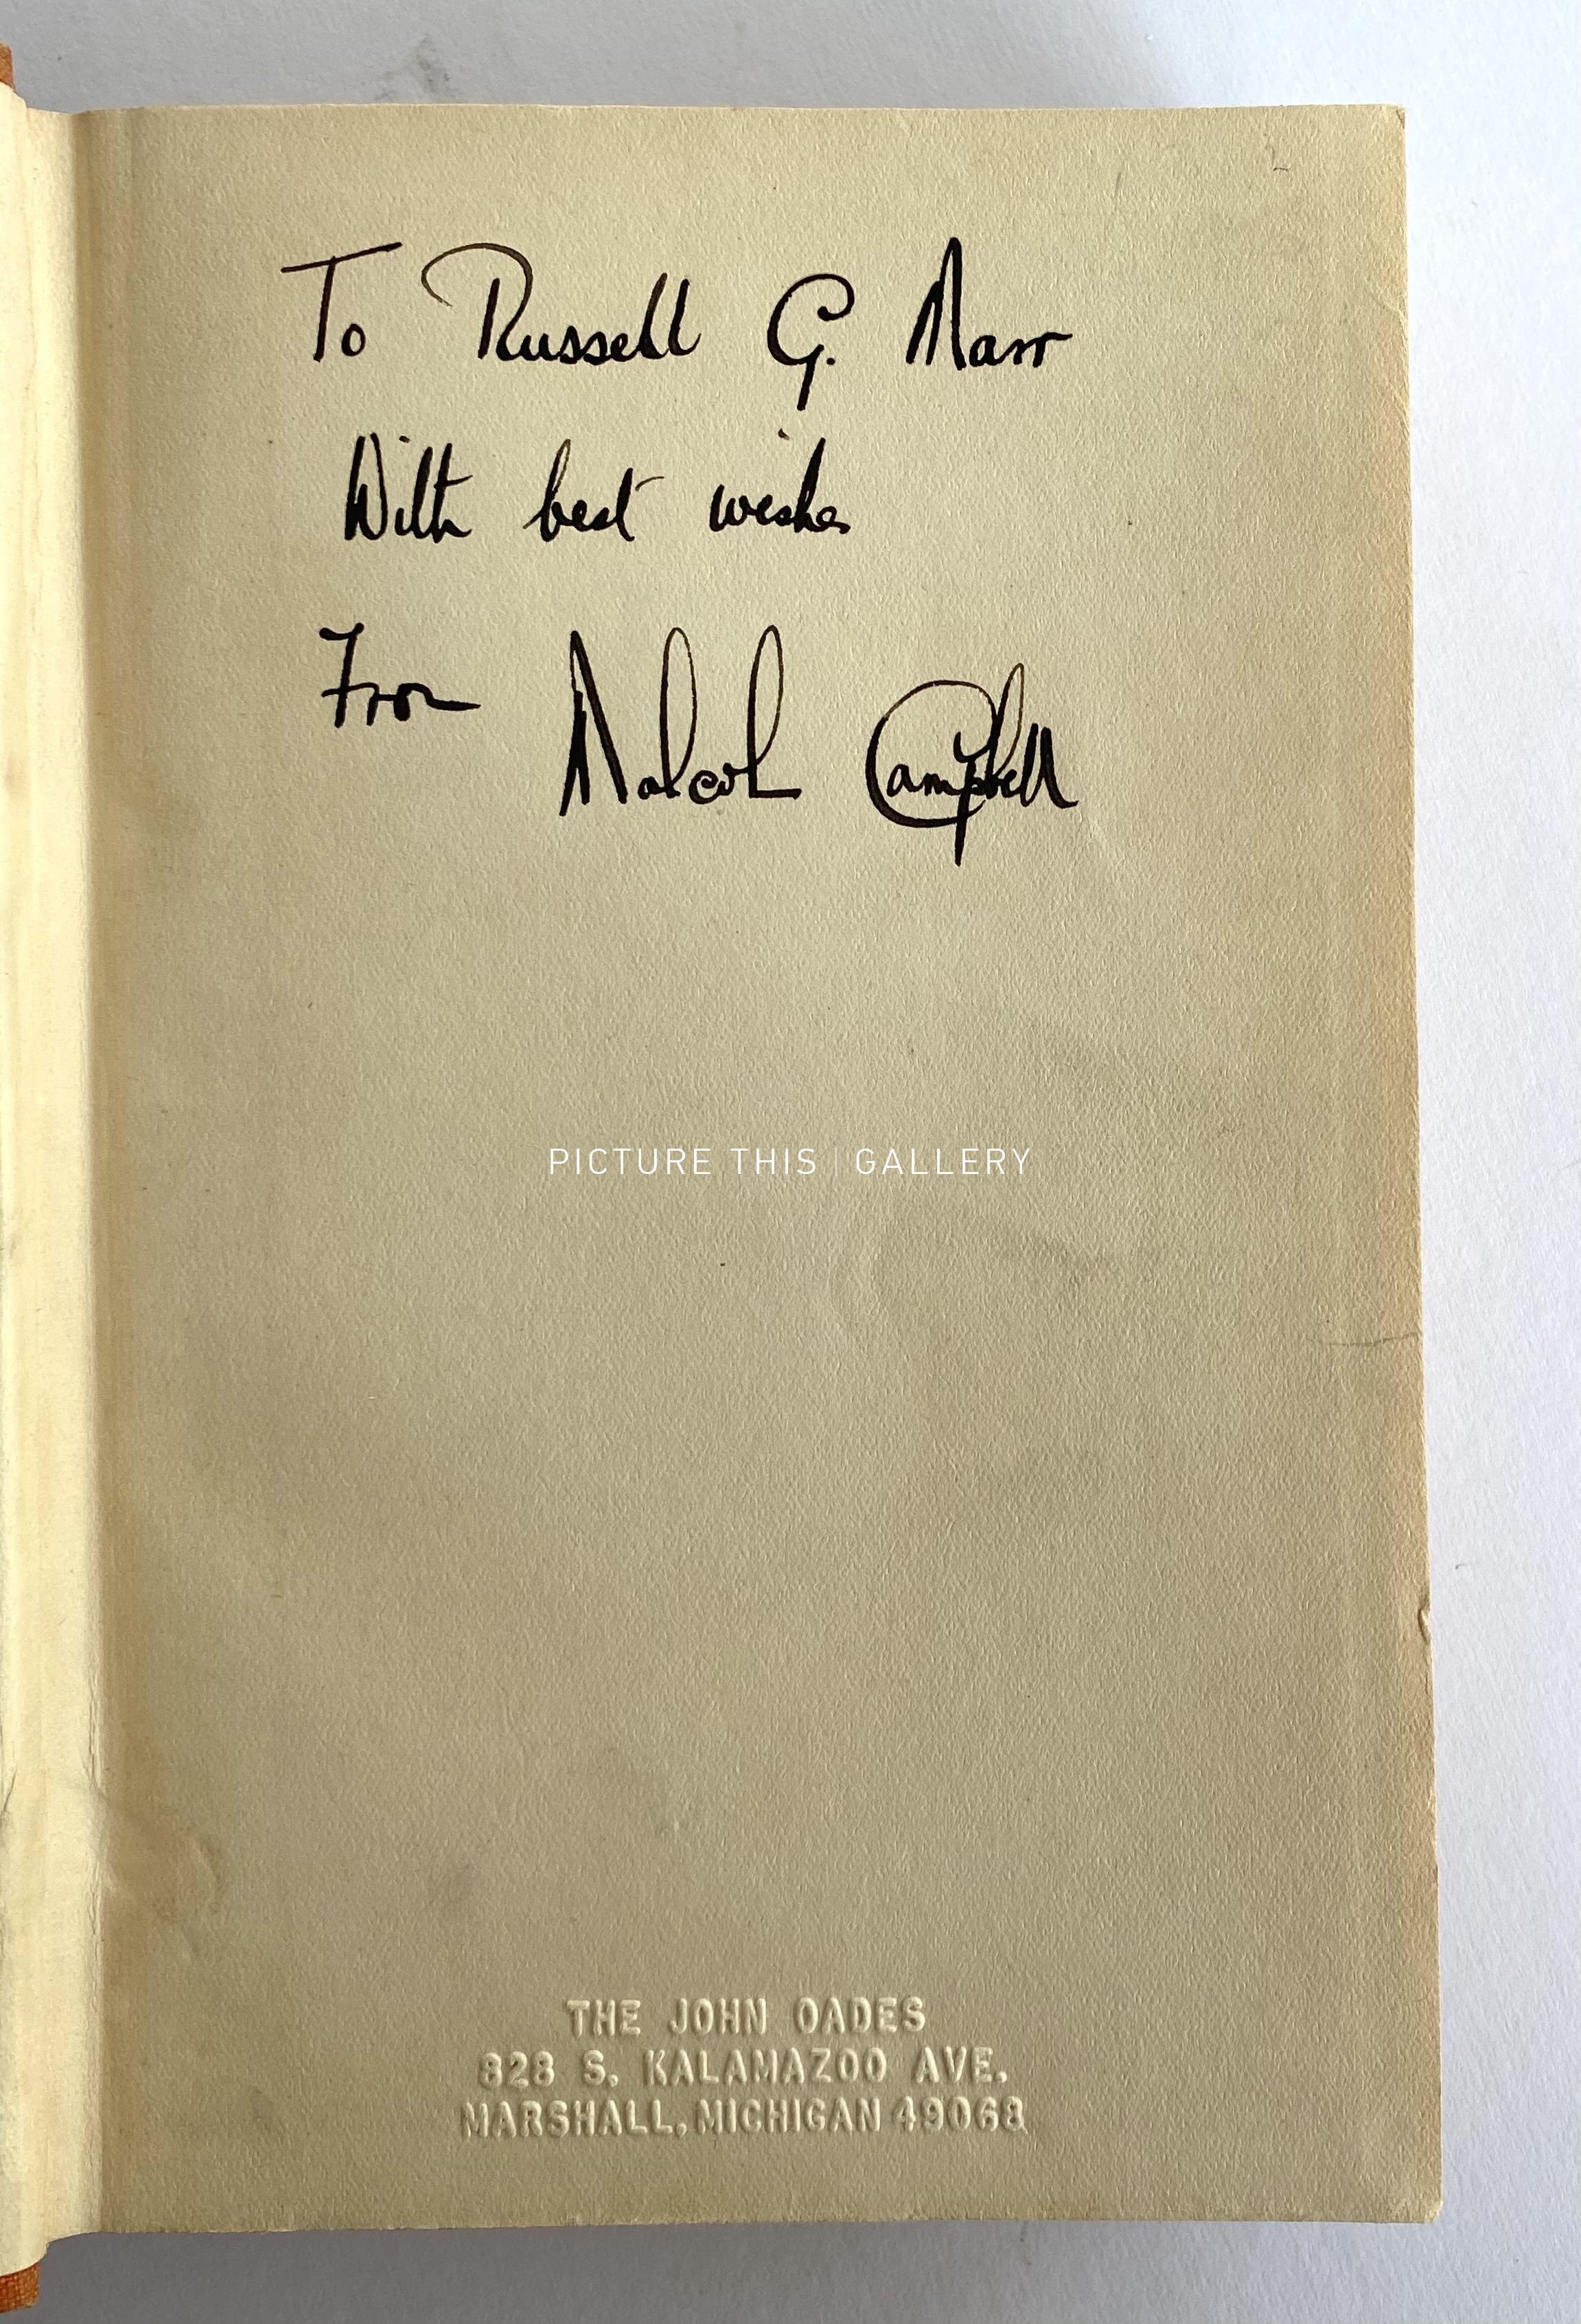 To Russell G. Marr
With best wishes
From Malcolm Campbell
PICTURE THIS | GALLERY
THE JOHN OADES
828 S. KALAMAZOO AVE.
MARSHALL, MICHIGAN 49068